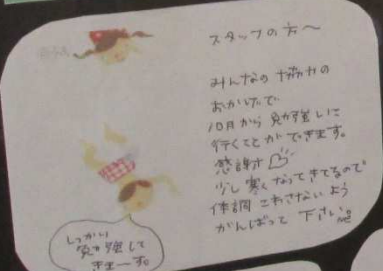 スタッフの方へ
みんなの協力の
おかげで
10月から勉強しに
行くことができます。
感謝♡
少し寒くなってきてるので
体調こわさないよう
がんばって下さい。
しっかり
勉強して
きまーす。